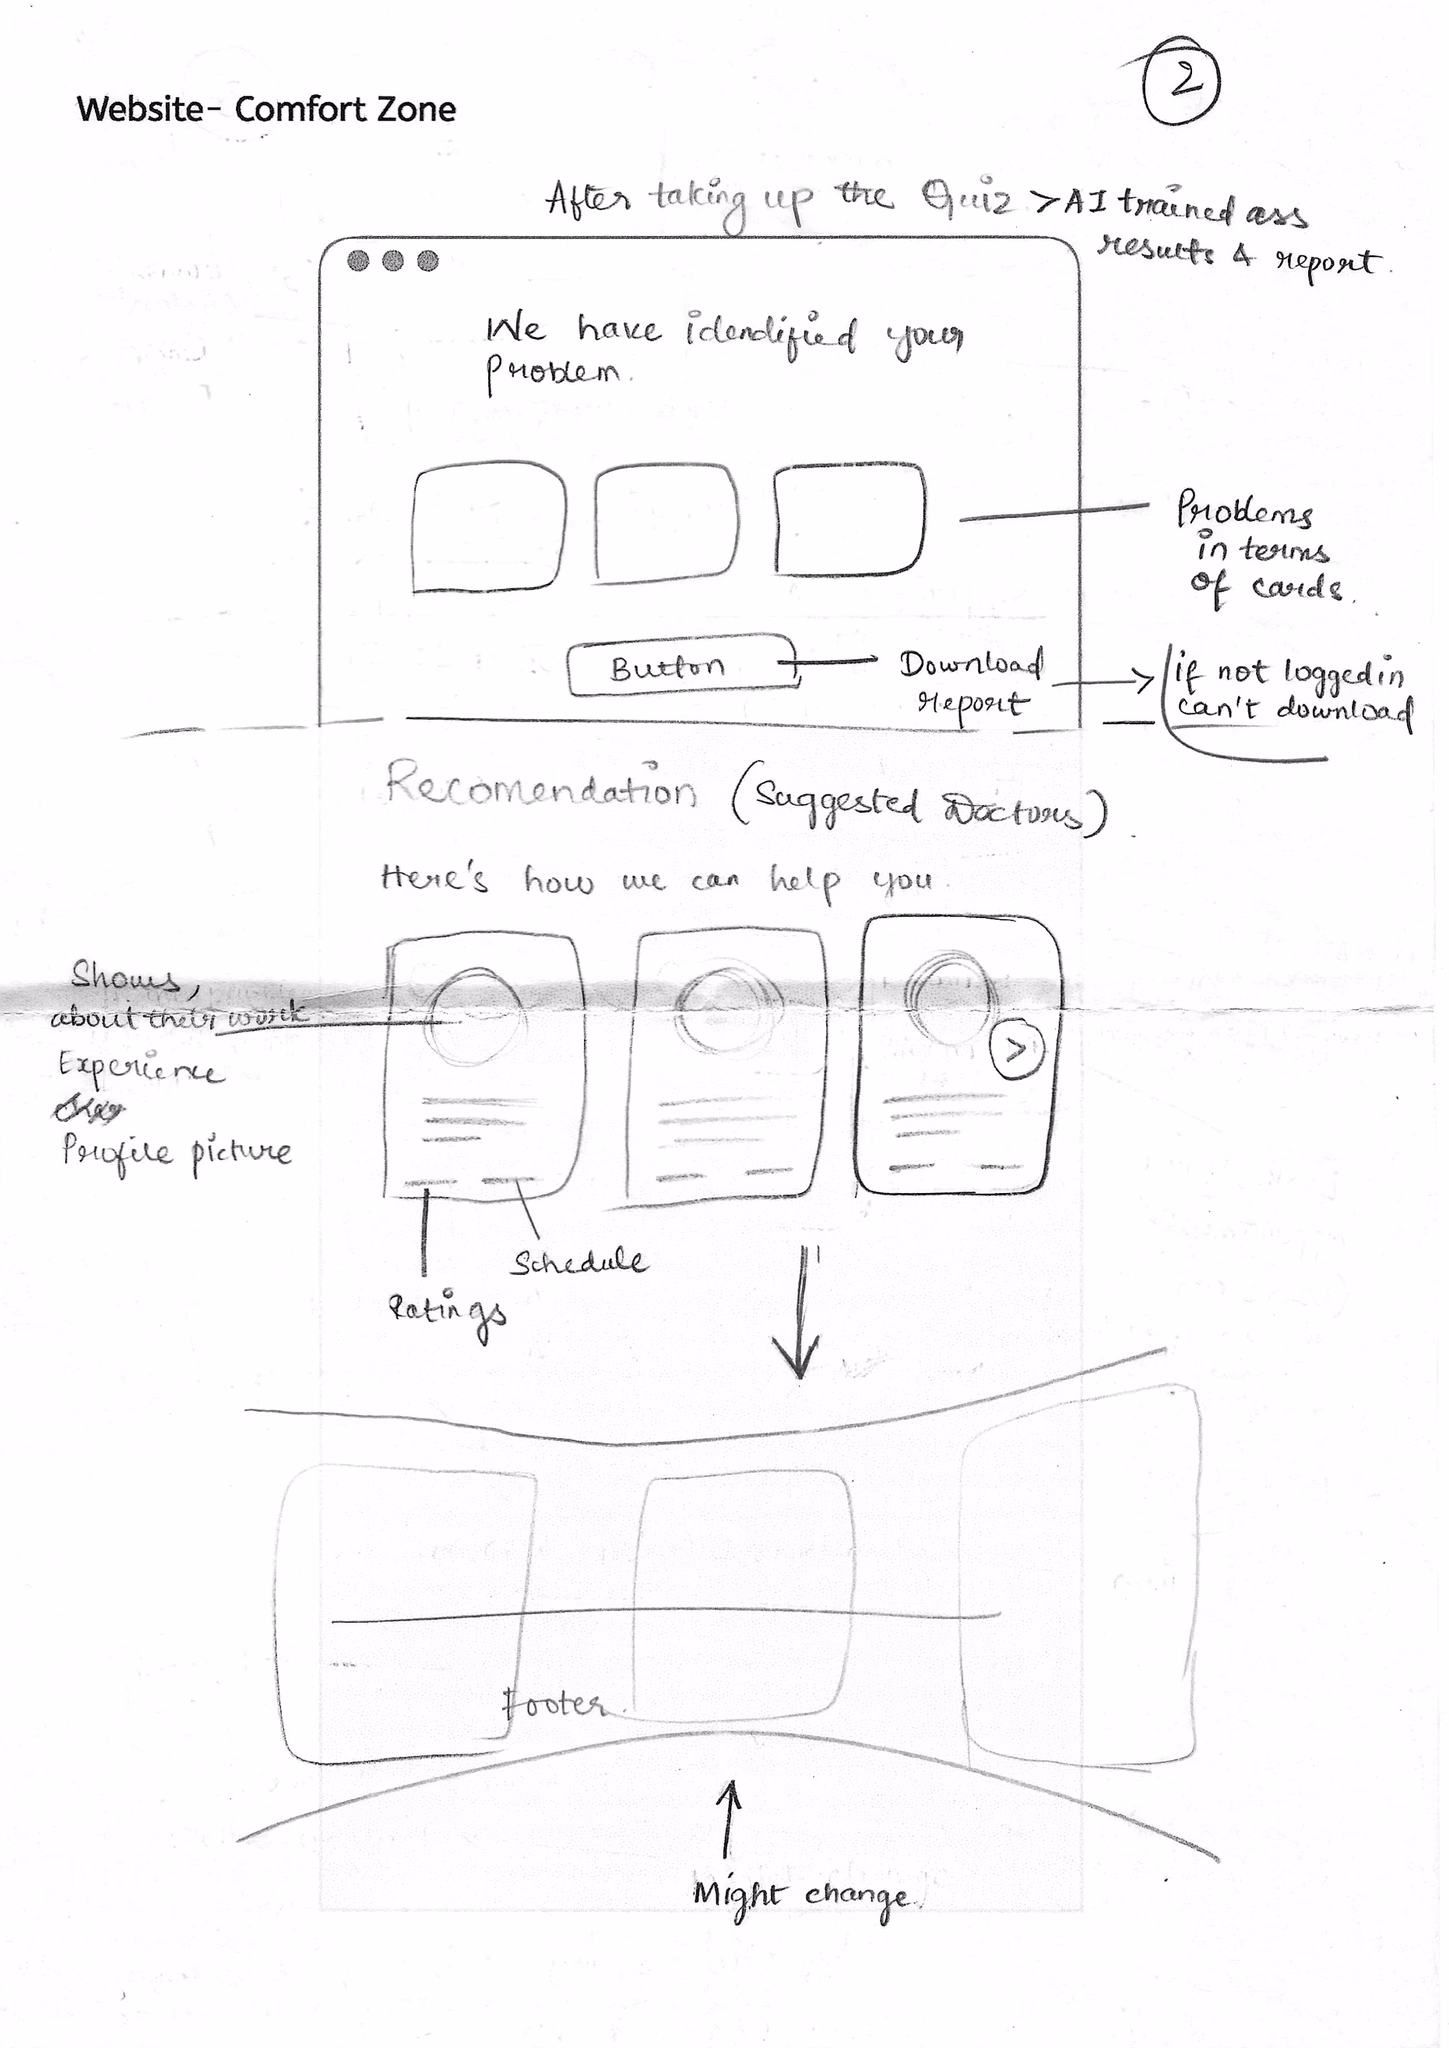 Website- Comfort Zone
2
After taking up the Quiz > AI trained ass
results & report.
We have idendified your
problem.
Problems
in terms
of cards.
Button
Download
report
if not loggedin
can't download
Recomendation (Suggested Doctors)
Here's how we can help you.
Shows,
about their work
Experience
Profile picture
>
Schedule
Ratings
Footer.
Might change.